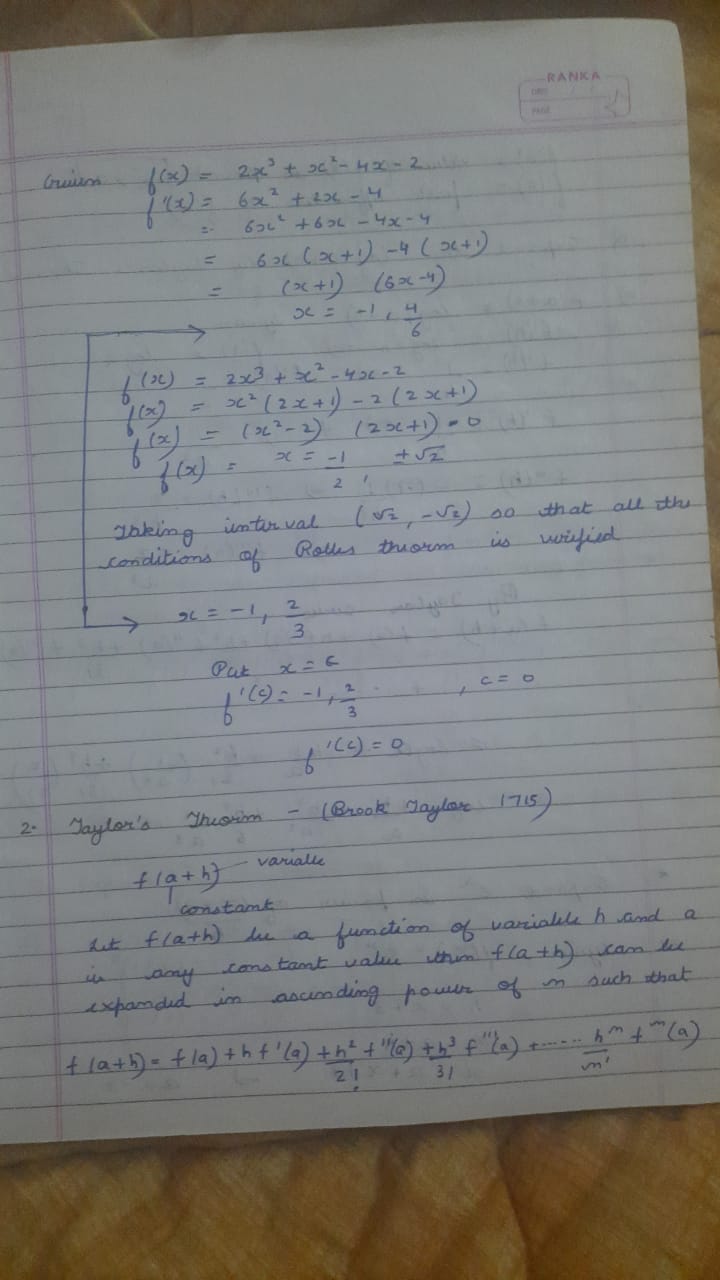 RANKA
DATE
PAGE
Given f(x) = 2x³ + x² - 4x - 2
f'(x) = 6x² + 2x - 4
= 6x² + 6x - 4x - 4
= 6x (x+1) - 4 (x+1)
= (x+1) (6x-4)
x = -1, 4/6
f(x) = 2x³ + x² - 4x - 2
f(x) = x² (2x+1) - 2 (2x+1)
f(x) = (x²-2) (2x+1) = 0
f(x) = x = -1/2, ±√2
Taking interval (√2, -√2) so that all the
conditions of Rolles theorm is verified
x = -1, 2/3
Put x = c
f'(c) = -1, 2/3 , c = 0
f'(c) = 0
2. Taylor's Theorm - (Brook Taylor 1715)
f(a+h) - variable
constant
Let f(a+h) be a function of variable h and a
is any constant value then f(a+h) can be
expanded in ascending power of n such that
f(a+h) = f(a) + h f'(a) + h²/2! f''(a) + h³/3! f'''(a) + ...... hⁿ/n! fⁿ(a)